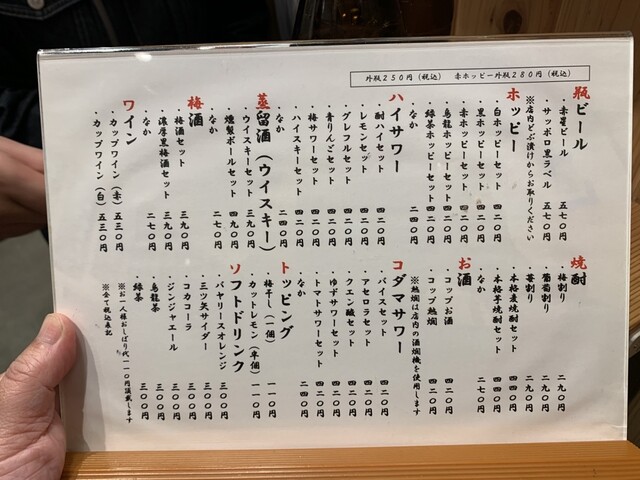 外瓶250円（税込） 赤ホッピー外瓶280円（税込）
瓶ビール
・赤星ビール 五七〇円
・サッポロ黒ラベル 五七〇円
※店内どぶ漬けからお取りください
ホッピー
・白ホッピーセット 四二〇円
・黒ホッピーセット 四二〇円
・赤ホッピーセット 四二〇円
・烏龍ホッピーセット 四二〇円
・緑茶ホッピーセット 四二〇円
・なか 二四〇円
ハイサワー
・酎ハイセット 四二〇円
・レモンセット 四二〇円
・グレフルセット 四二〇円
・青りんごセット 四二〇円
・梅サワーセット 四二〇円
・ハイスキーセット 四二〇円
・なか 二四〇円
蒸留酒（ウイスキー）
・ウイスキーセット 三九〇円
・燻製ボールセット 四九〇円
・なか 二七〇円
梅酒
・梅酒セット 三九〇円
・濃厚黒梅酒セット 三九〇円
・なか 二七〇円
ワイン
・カップワイン（赤） 五三〇円
・カップワイン（白） 五三〇円
焼酎
・梅割り 二九〇円
・葡萄割り 二九〇円
・苺割り 二九〇円
・本格麦焼酎セット 四四〇円
・本格芋焼酎セット 四四〇円
・なか 二七〇円
お酒
・コップお酒 四二〇円
・コップ熱燗 四二〇円
※熱燗は店内の酒燗機を使用します
コダマサワー
・バイスセット 四二〇円
・アセロラセット 四二〇円
・クエン酸セット 四二〇円
・ゆずサワーセット 四二〇円
・トマトサワーセット 四二〇円
・なか 二四〇円
トッピング
・梅干し（一個） 一一〇円
・カットレモン（半個） 一一〇円
ソフトドリンク
・バヤリースオレンジ 三〇〇円
・三ツ矢サイダー 三〇〇円
・コカコーラ 三〇〇円
・ジンジャエール 三〇〇円
・烏龍茶 三〇〇円
・緑茶 三〇〇円
※お一人様おしぼり代一一〇円頂戴します
※全て税込表記